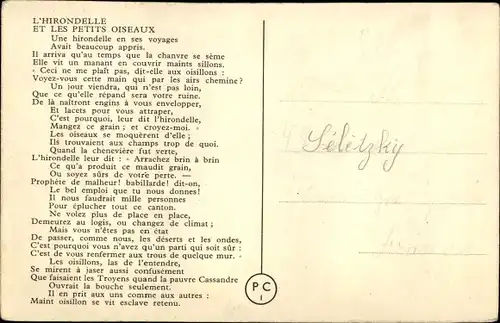 L'HIRONDELLE
ET LES PETITS OISEAUX
Une hirondelle en ses voyages
Avait beaucoup appris.
Il arriva qu'au temps que la chanvre se sème
Elle vit un manant en couvrir maints sillons.
« Ceci ne me plaît pas, dit-elle aux oisillons :
Voyez-vous cette main qui par les airs chemine ?
Un jour viendra, qui n'est pas loin,
Que ce qu'elle répand sera votre ruine.
De là naîtront engins à vous envelopper,
Et lacets pour vous attraper,
C'est pourquoi, leur dit l'hirondelle,
Mangez ce grain ; et croyez-moi. »
Les oiseaux se moquèrent d'elle ;
Ils trouvaient aux champs trop de quoi.
Quand la chènevière fut verte,
L'hirondelle leur dit : « Arrachez brin à brin
Ce qu'a produit ce maudit grain,
Ou soyez sûrs de votre perte. —
Prophète de malheur ! babillarde ! dit-on,
Le bel emploi que tu nous donnes !
Il nous faudrait mille personnes
Pour éplucher tout ce canton.
Ne volez plus de place en place,
Demeurez au logis, ou changez de climat ;
Mais vous n'êtes pas en état
De passer, comme nous, les déserts et les ondes,
C'est pourquoi vous n'avez qu'un parti qui soit sûr :
C'est de vous renfermer aux trous de quelque mur. »
Les oisillons, las de l'entendre,
Se mirent à jaser aussi confusément
Que faisaient les Troyens quand la pauvre Cassandre
Ouvrait la bouche seulement.
Il en prit aux uns comme aux autres :
Maint oisillon se vit esclave retenu.
Sélétzky
PC
1